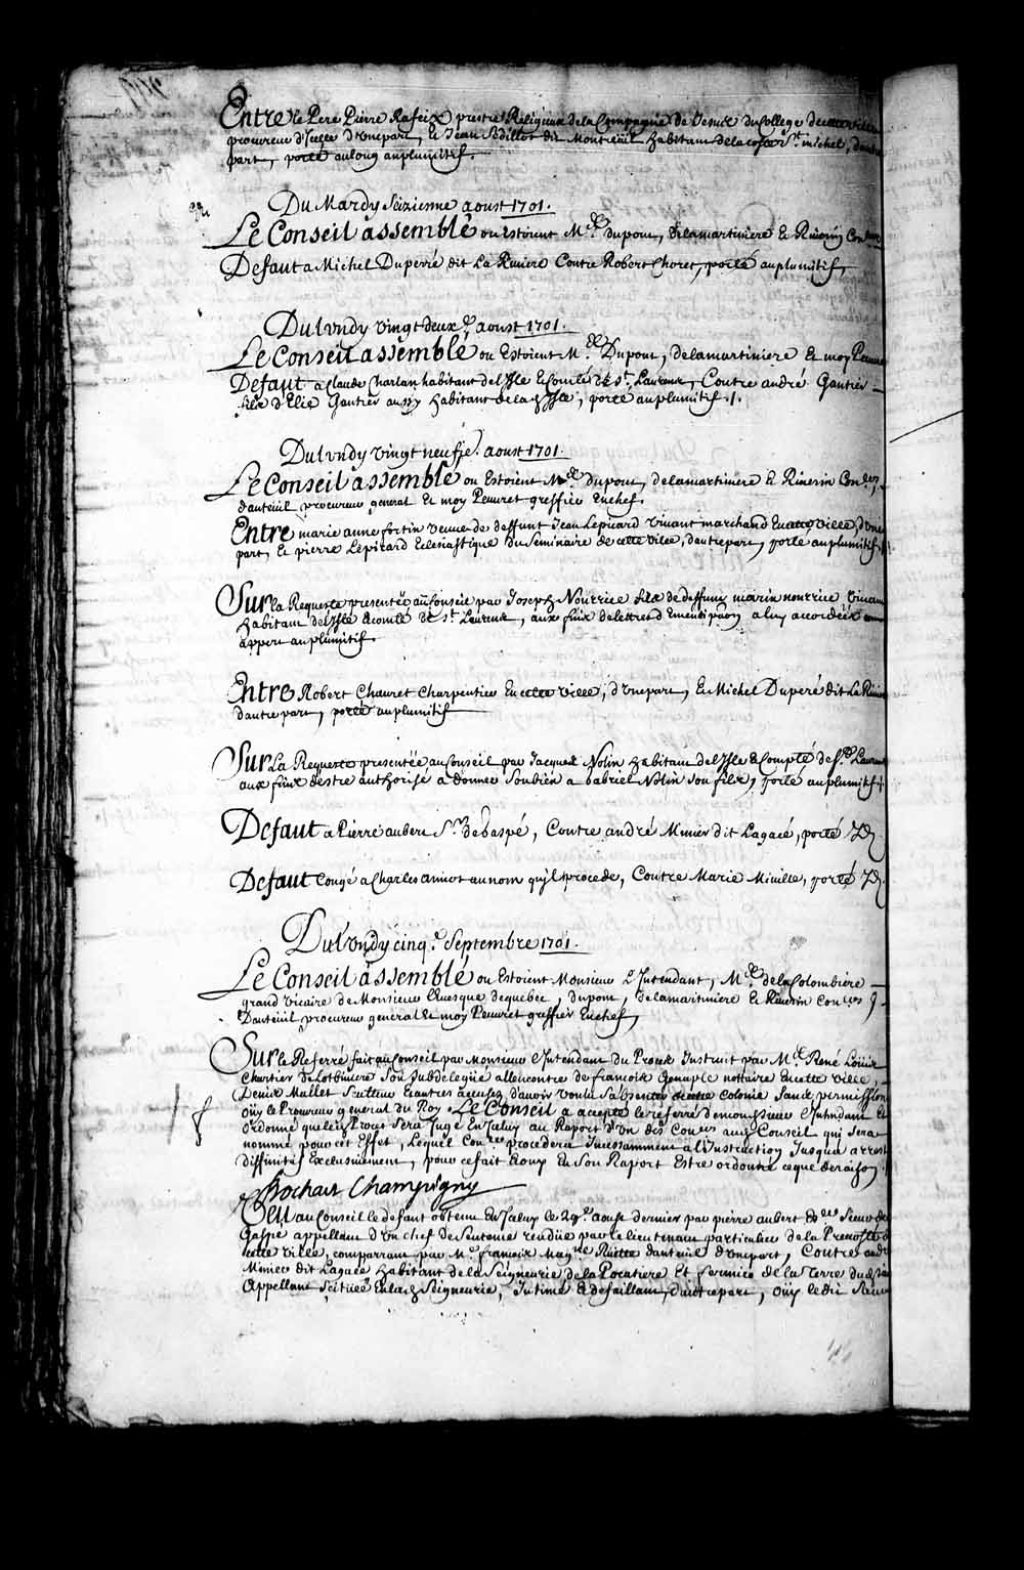 Entre le Pere Pierre Rafeix prestre Religieux de la Compagnie de Jesus du College de cette ville
procureur d'Icelle d'vne part, Et Jean Sedillot dit Montreüil habitant de la coste St. michel, d'autre
part, porté au long au plumitif.
Du Mardy Seizieme aoust 1701.
Le Conseil assemblé ou Estoient Mes. dupont, delamartiniere & Riverin Coners
Defaut a Michel Duperré dit La Riviere Contre Robert Choret, porté au plumitif,
Du lundy vingt deuxe. aoust 1701.
Le Conseil assemblé ou Estoient Mes. Dupont, delamartiniere Et moy Peuuret
Defaut a Claude Charlan habitant de l'Isle & Comté de St. Laurens, Contre andré Gautier
fils d'Elie Gautier aussy habitant de lad. Isle, porté au plumitif./.
Du lundy vingt neufie. aoust 1701.
Le Conseil assemblé ou Estoient Mes. dupont, delamartiniere & Riverin Coners.
dauteuil procureur general Et moy Peuuret greffier En chef.
Entre marie anne fortin veuue de deffunt Jean Lepicard viuant marchand En cette ville, d'vne
part, Et pierre Lepicard Eclesiastique du Seminaire de cette ville, dautre part, porté au plumitif
Sur la Requeste presentée au Conseil par Joseph Nourrice fils de deffunt marin nourrice viuant
habitant de l'Isle & comté de St. Laurens, aux fins de lettres d'Emancipaon a luy accordées
appert au plumitif
Entre Robert Chauret Charpentier En cette ville, d'vne part, Et Michel Duperé dit La Riviere
dautre part, porté au plumitif
Sur La Requeste presentée au Conseil par Jacques Nolin habitant de l'Isle & Compté de St. Laurens
aux fins destre authorisé a donner son bien a Gabriel Nolin son fils, porté au plumitif
Defaut a Pierre aubert Sr. de Gaspé, Contre andré Minier dit Lagacé, porté Id.
Defaut Congé a Charles amiot au nom qu'il procede, Contre Marie Miuille, porté Id.
Du lundy cinqe. Septembre 1701.
Le Conseil assemblé ou Estoient Monsieur L'Intendant, Mes. de la Colombiere
grand vicaire de Monsieur l'Euesque de quebec, dupont, delamartiniere Et Riverin Coners
Dauteuil procureur general Et moy Peuuret greffier En chef,
Sur le Referré fait au Conseil par Monsieur l'Intendant du Procès Instruit par Me. René Loüis
Chartier de Lotbiniere Son Subdelegüé allencontre de francois Genaple nottaire En cette ville,
Denis Mallet Sculteur & autres accusez d'auoir voulu s'absenter de cette Colonie Sans permission
oüy le Procureur general du Roy. Le Conseil a accepté le referré de monsieur l'Intendant Et
ordonné que led. Procès Sera Jugé En Iceluy au Raport d'vn des Coners aud. Conseil qui sera
nommé pour cet Effet, Lequel Coner. procedera Incessamment a l'Instruction Jusqu'a arrest
diffinitif Exclusiuement, pour ce fait & ouy En son Raport Estre ordonné ce que de raison.
Bochart Champigny
Veu au Conseil le defaut obtenu En Iceluy le 29e. aoust dernier par pierre aubert Escuier Sieur de
Gaspé appellant d'vn chef de Sentence rendüe par le lieutenant particulier de la Preuosté de
cette ville, comparant par Me. francois Magne. Ruette dauteuil d'vne part, Contre andré
Minier dit Lagacé habitant de la Seigneurie de la Pocatiere Et fermier de la terre dud. Sieur
Appellant Scituée En lad. Seigneurie, Intimé & defaillant, dautre part, ouy ledit Sieur